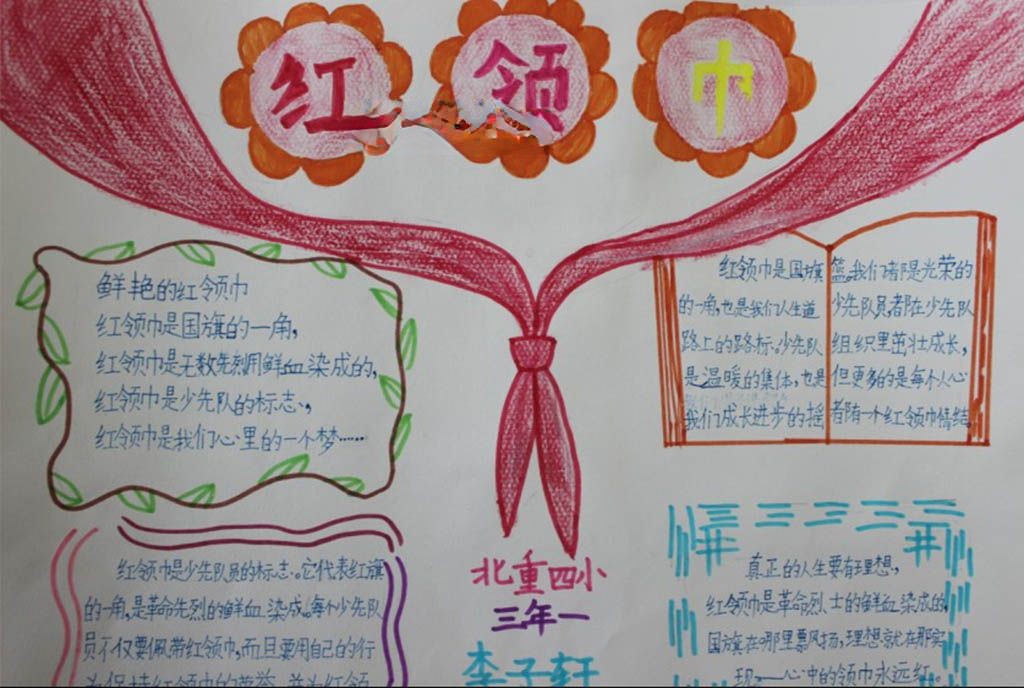 红领巾
鲜艳的红领巾
红领巾是国旗的一角,
红领巾是无数先烈用鲜血染成的,
红领巾是少先队的标志,
红领巾是我们心里的一个梦……
红领巾是国旗
的一角,也是我们人生道
路上的路标。少先队
是温暖的集体,也是
我们成长进步的摇
篮。我们都是光荣的
少先队员,都在少先队
组织里茁壮成长,
但更多的是每个人心
都有一个红领巾情结。
红领巾是少先队员的标志。它代表红旗
的一角,是革命先烈的鲜血染成。每个少先队
员不仅要佩带红领巾,而且要用自己的行
为保持红领巾的荣誉,并为红领
北重四小
三年一
李子轩
真正的人生要有理想,
红领巾是革命烈士的鲜血染成的,
国旗在哪里飘风扬,理想就在那实
现——心中的领巾永远红。